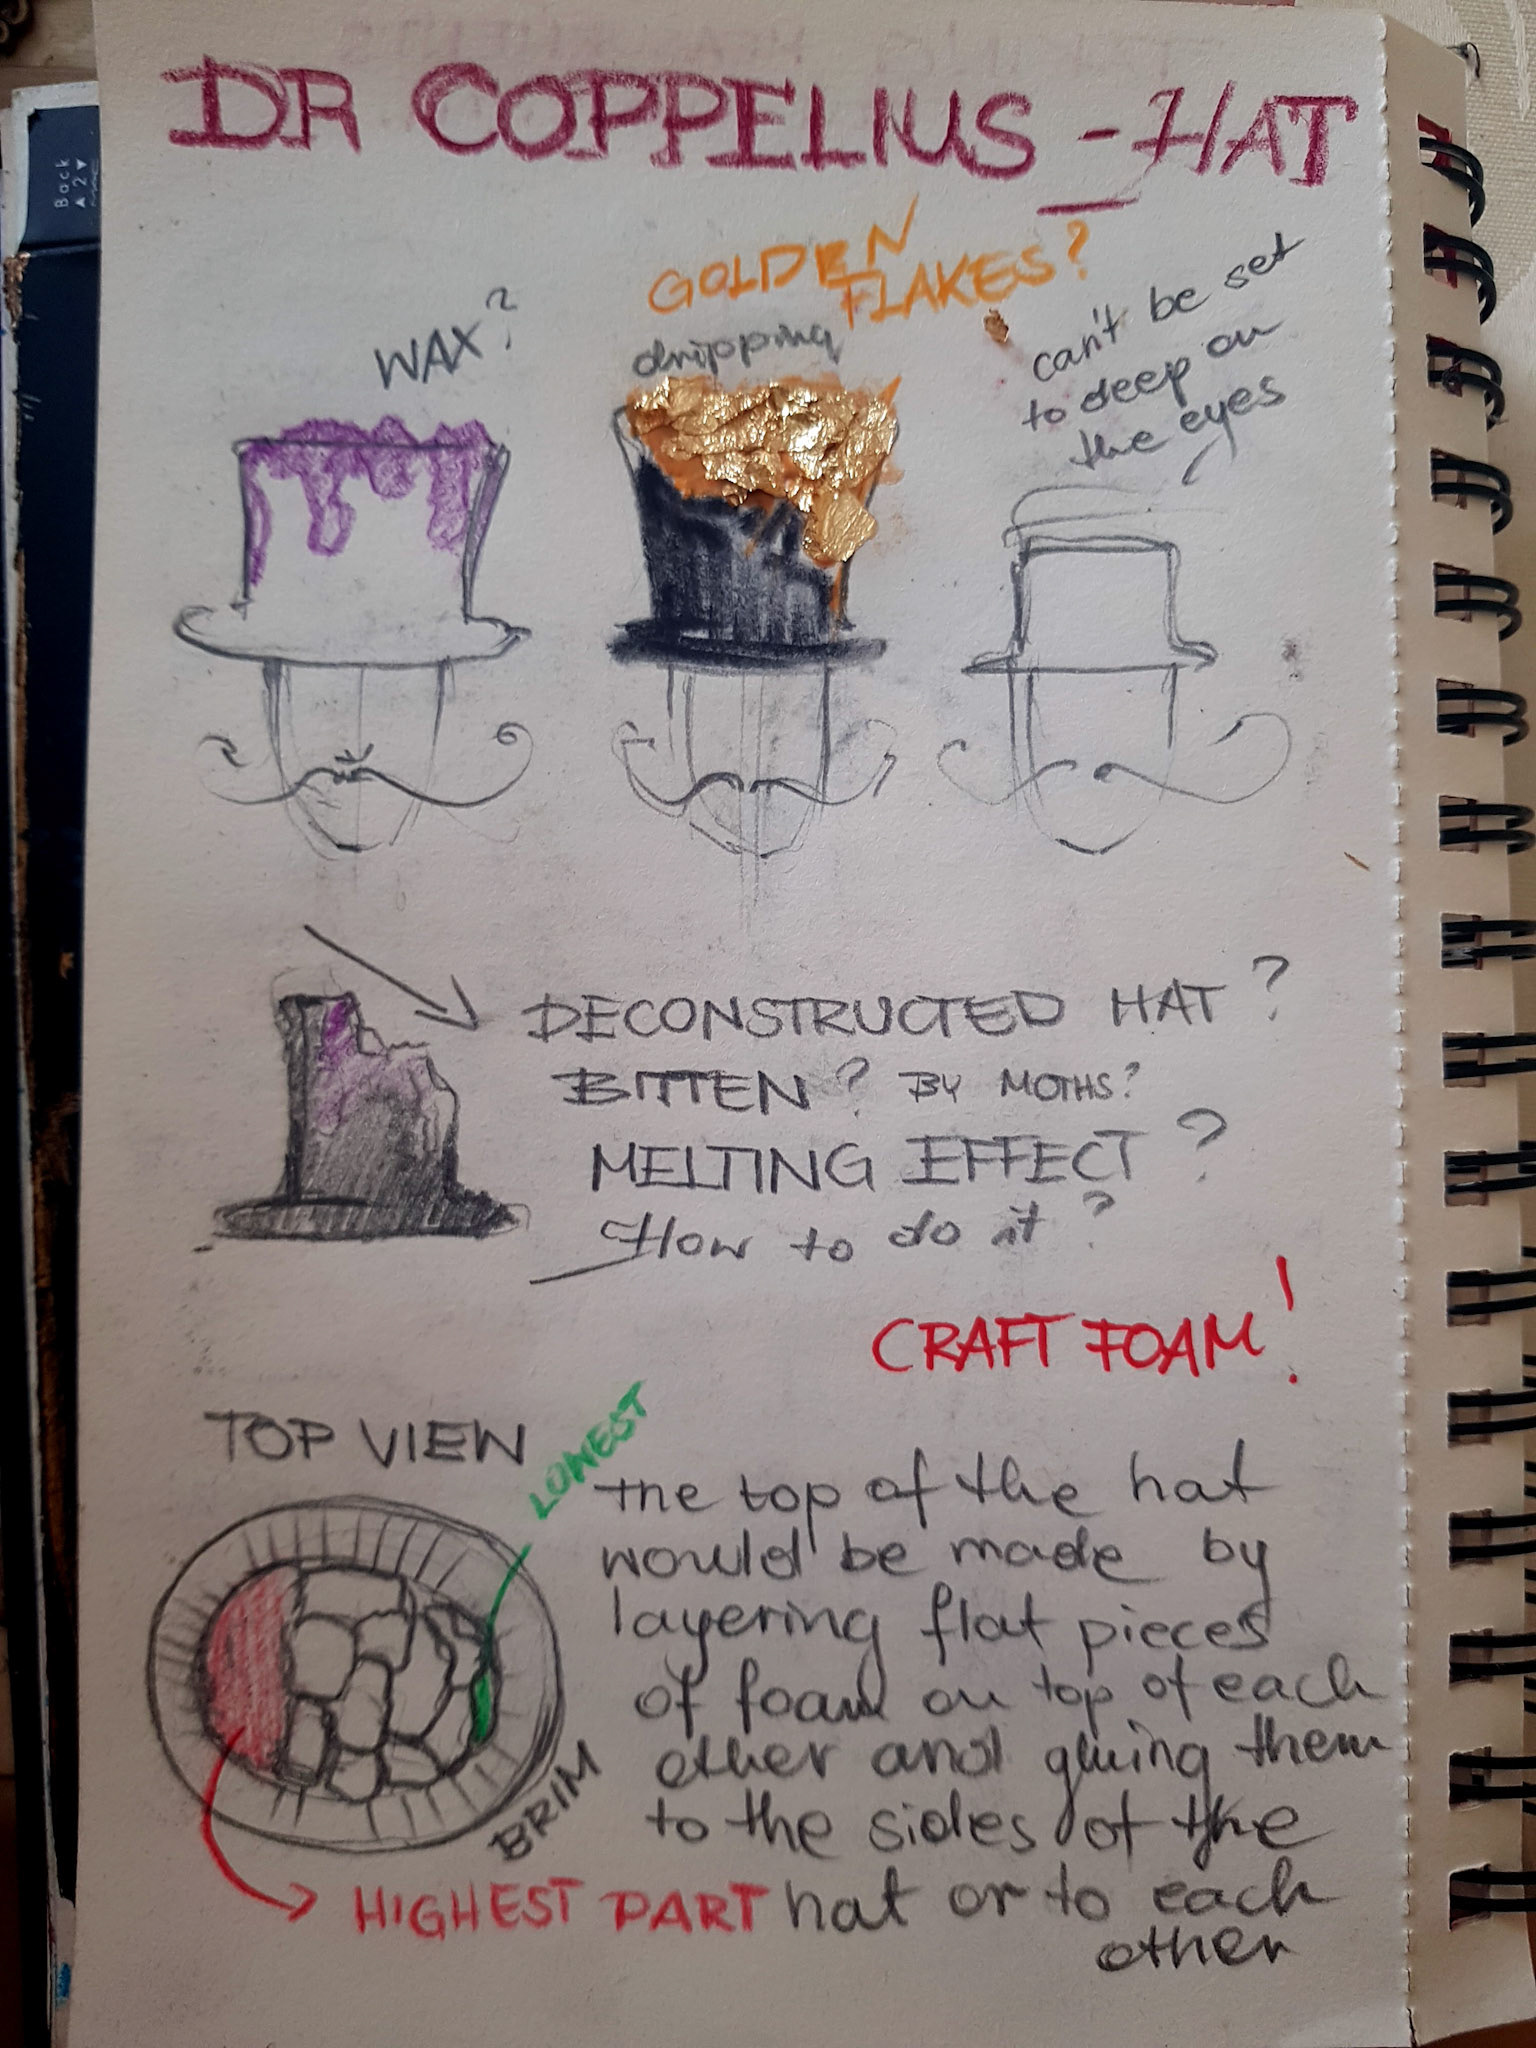 DR COPPELIUS - HAT
WAX?
GOLDEN
FLAKES?
dripping
can't be set
to deep on
the eyes
DECONSTRUCTED HAT?
BITTEN? BY MOTHS?
MELTING EFFECT?
How to do it?
CRAFT FOAM!
TOP VIEW
LOWEST
the top of the hat
would be made by
layering flat pieces
of foam on top of each
other and gluing them
to the sides of the
hat or to each
other
BRIM
HIGHEST PART
Back
▲ 2 ▼